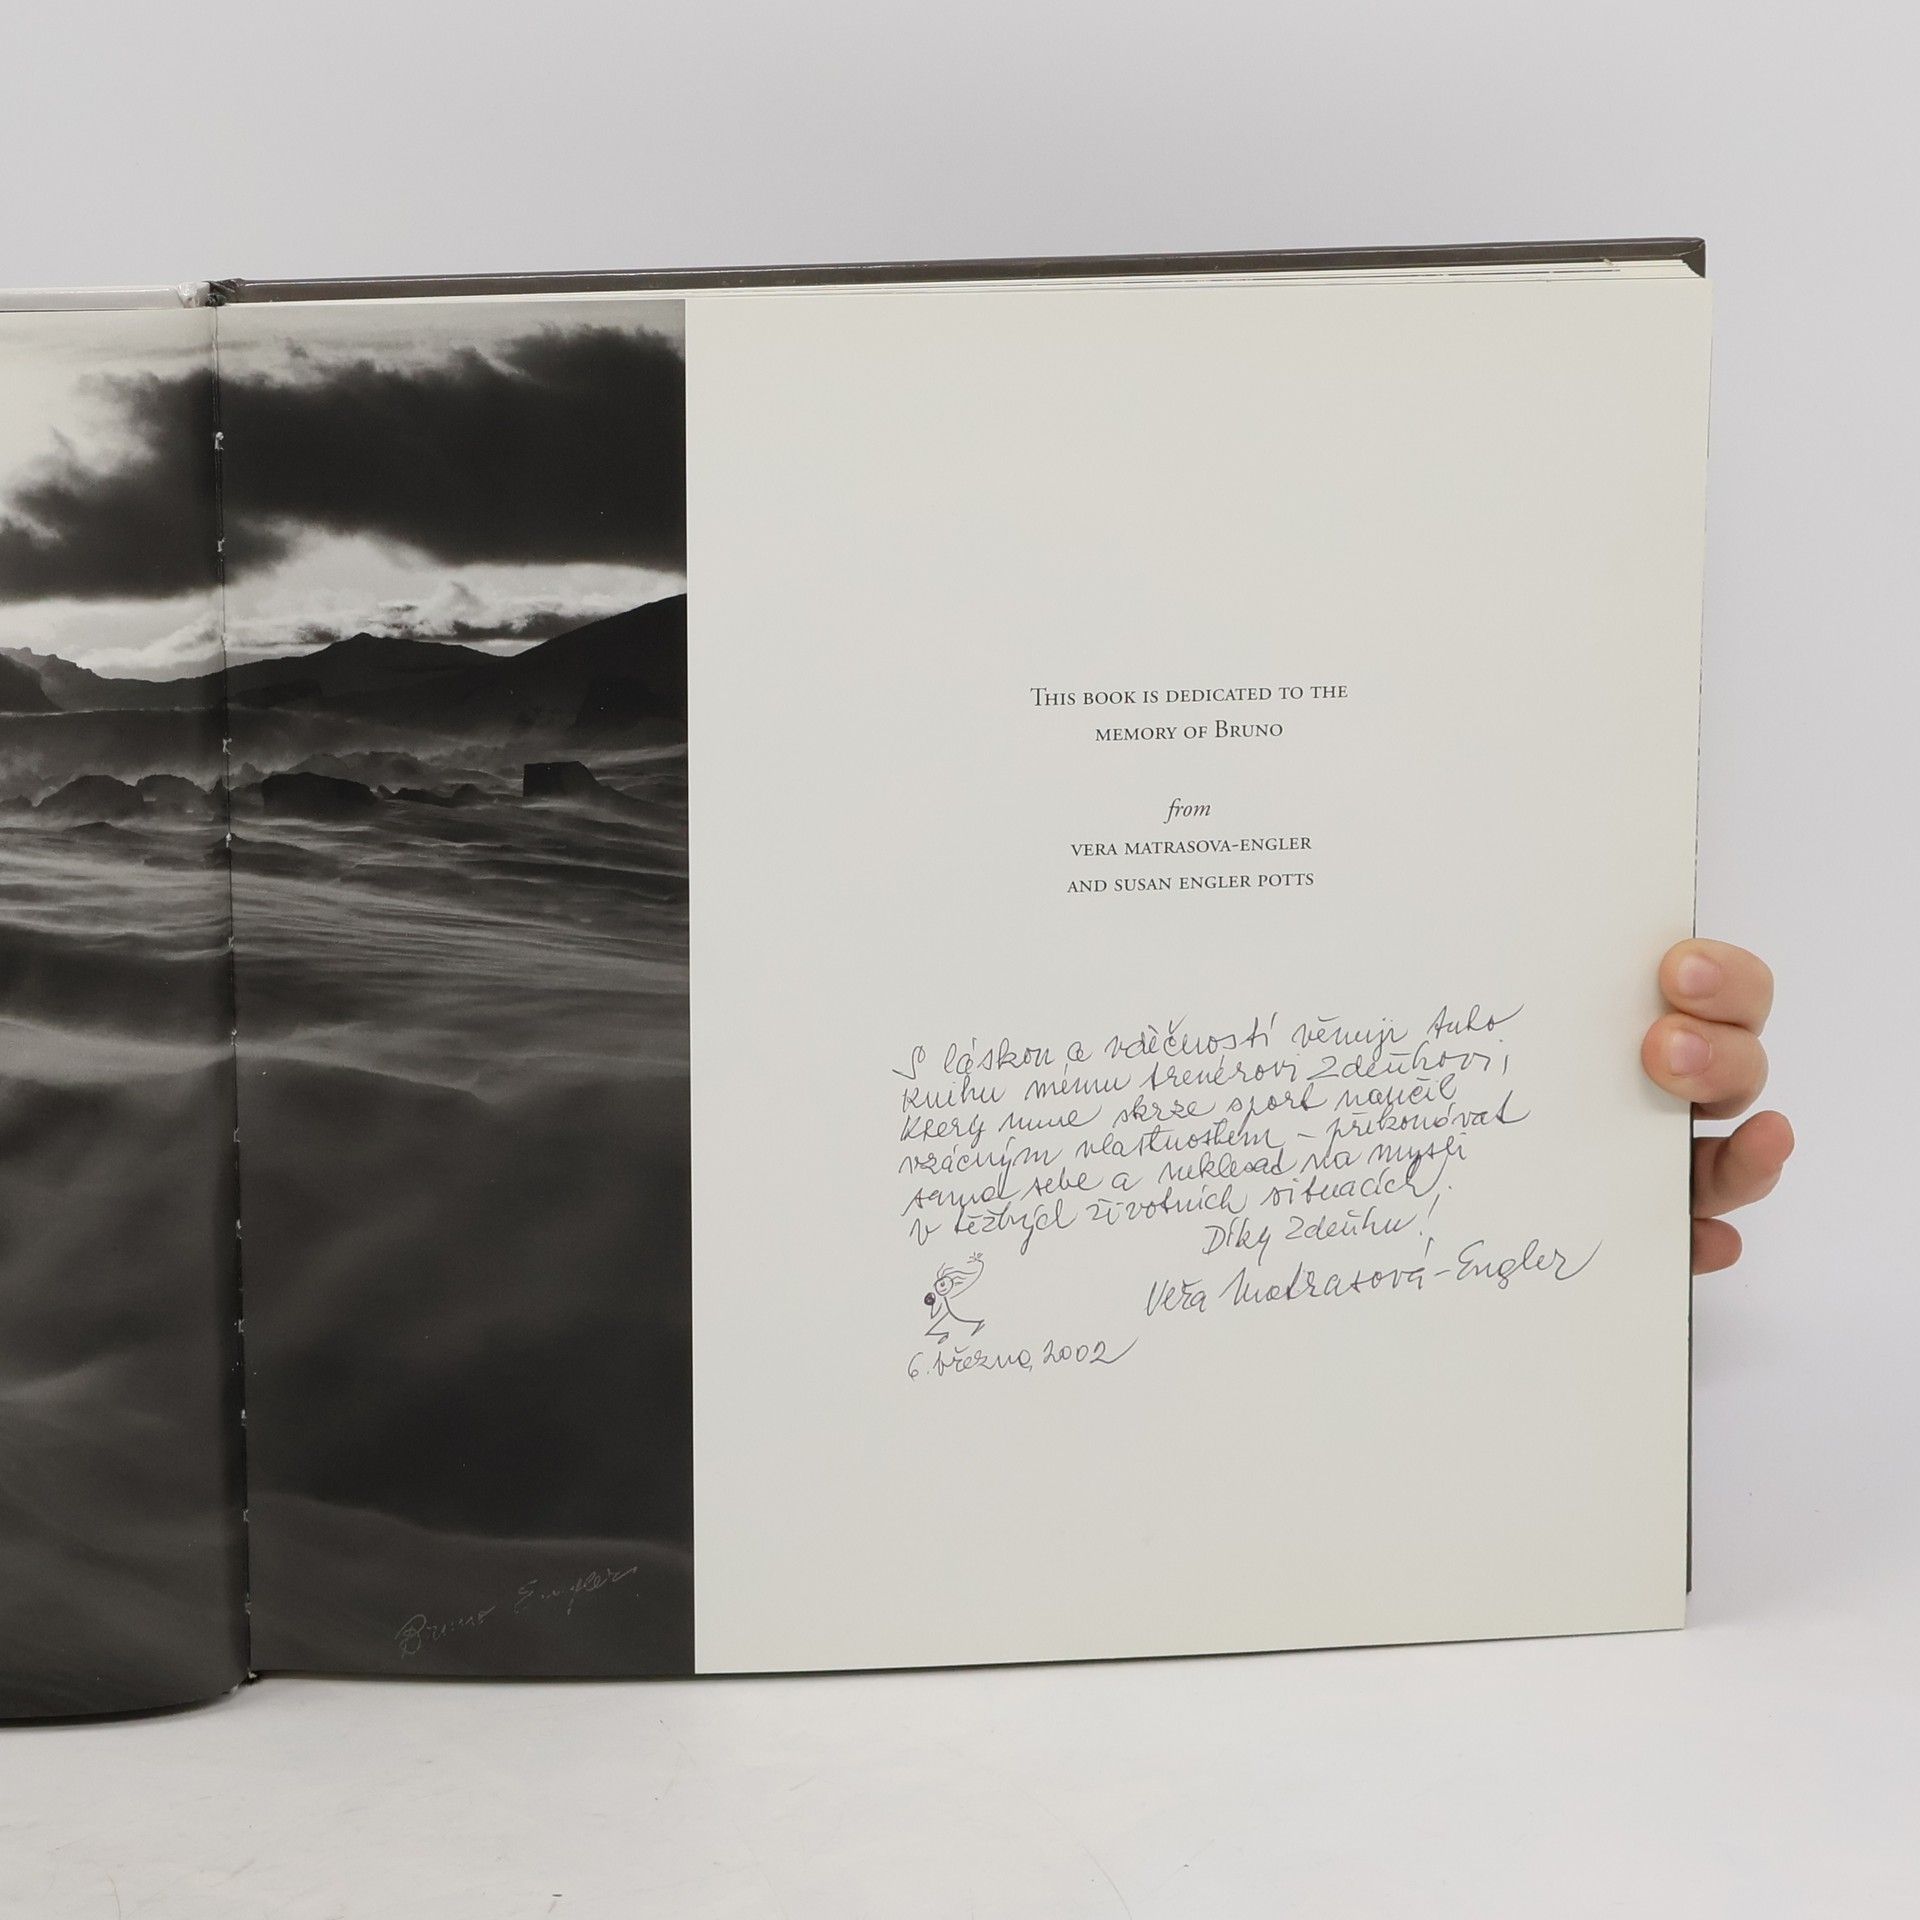 THIS BOOK IS DEDICATED TO THE
MEMORY OF BRUNO
from
VERA MATRASOVA-ENGLER
AND SUSAN ENGLER POTTS
S láskou a vděčností věnuji tuto
knihu mému trenérovi Zdeňkovi,
který mne skrze sport naučil
vzácným vlastnostem – překonávat
sama sebe a neklesat na mysli
v těžkých životních situacích.
Díky Zdeňku!
Věra Matrasová-Engler
6. března 2002
Bruno Engler